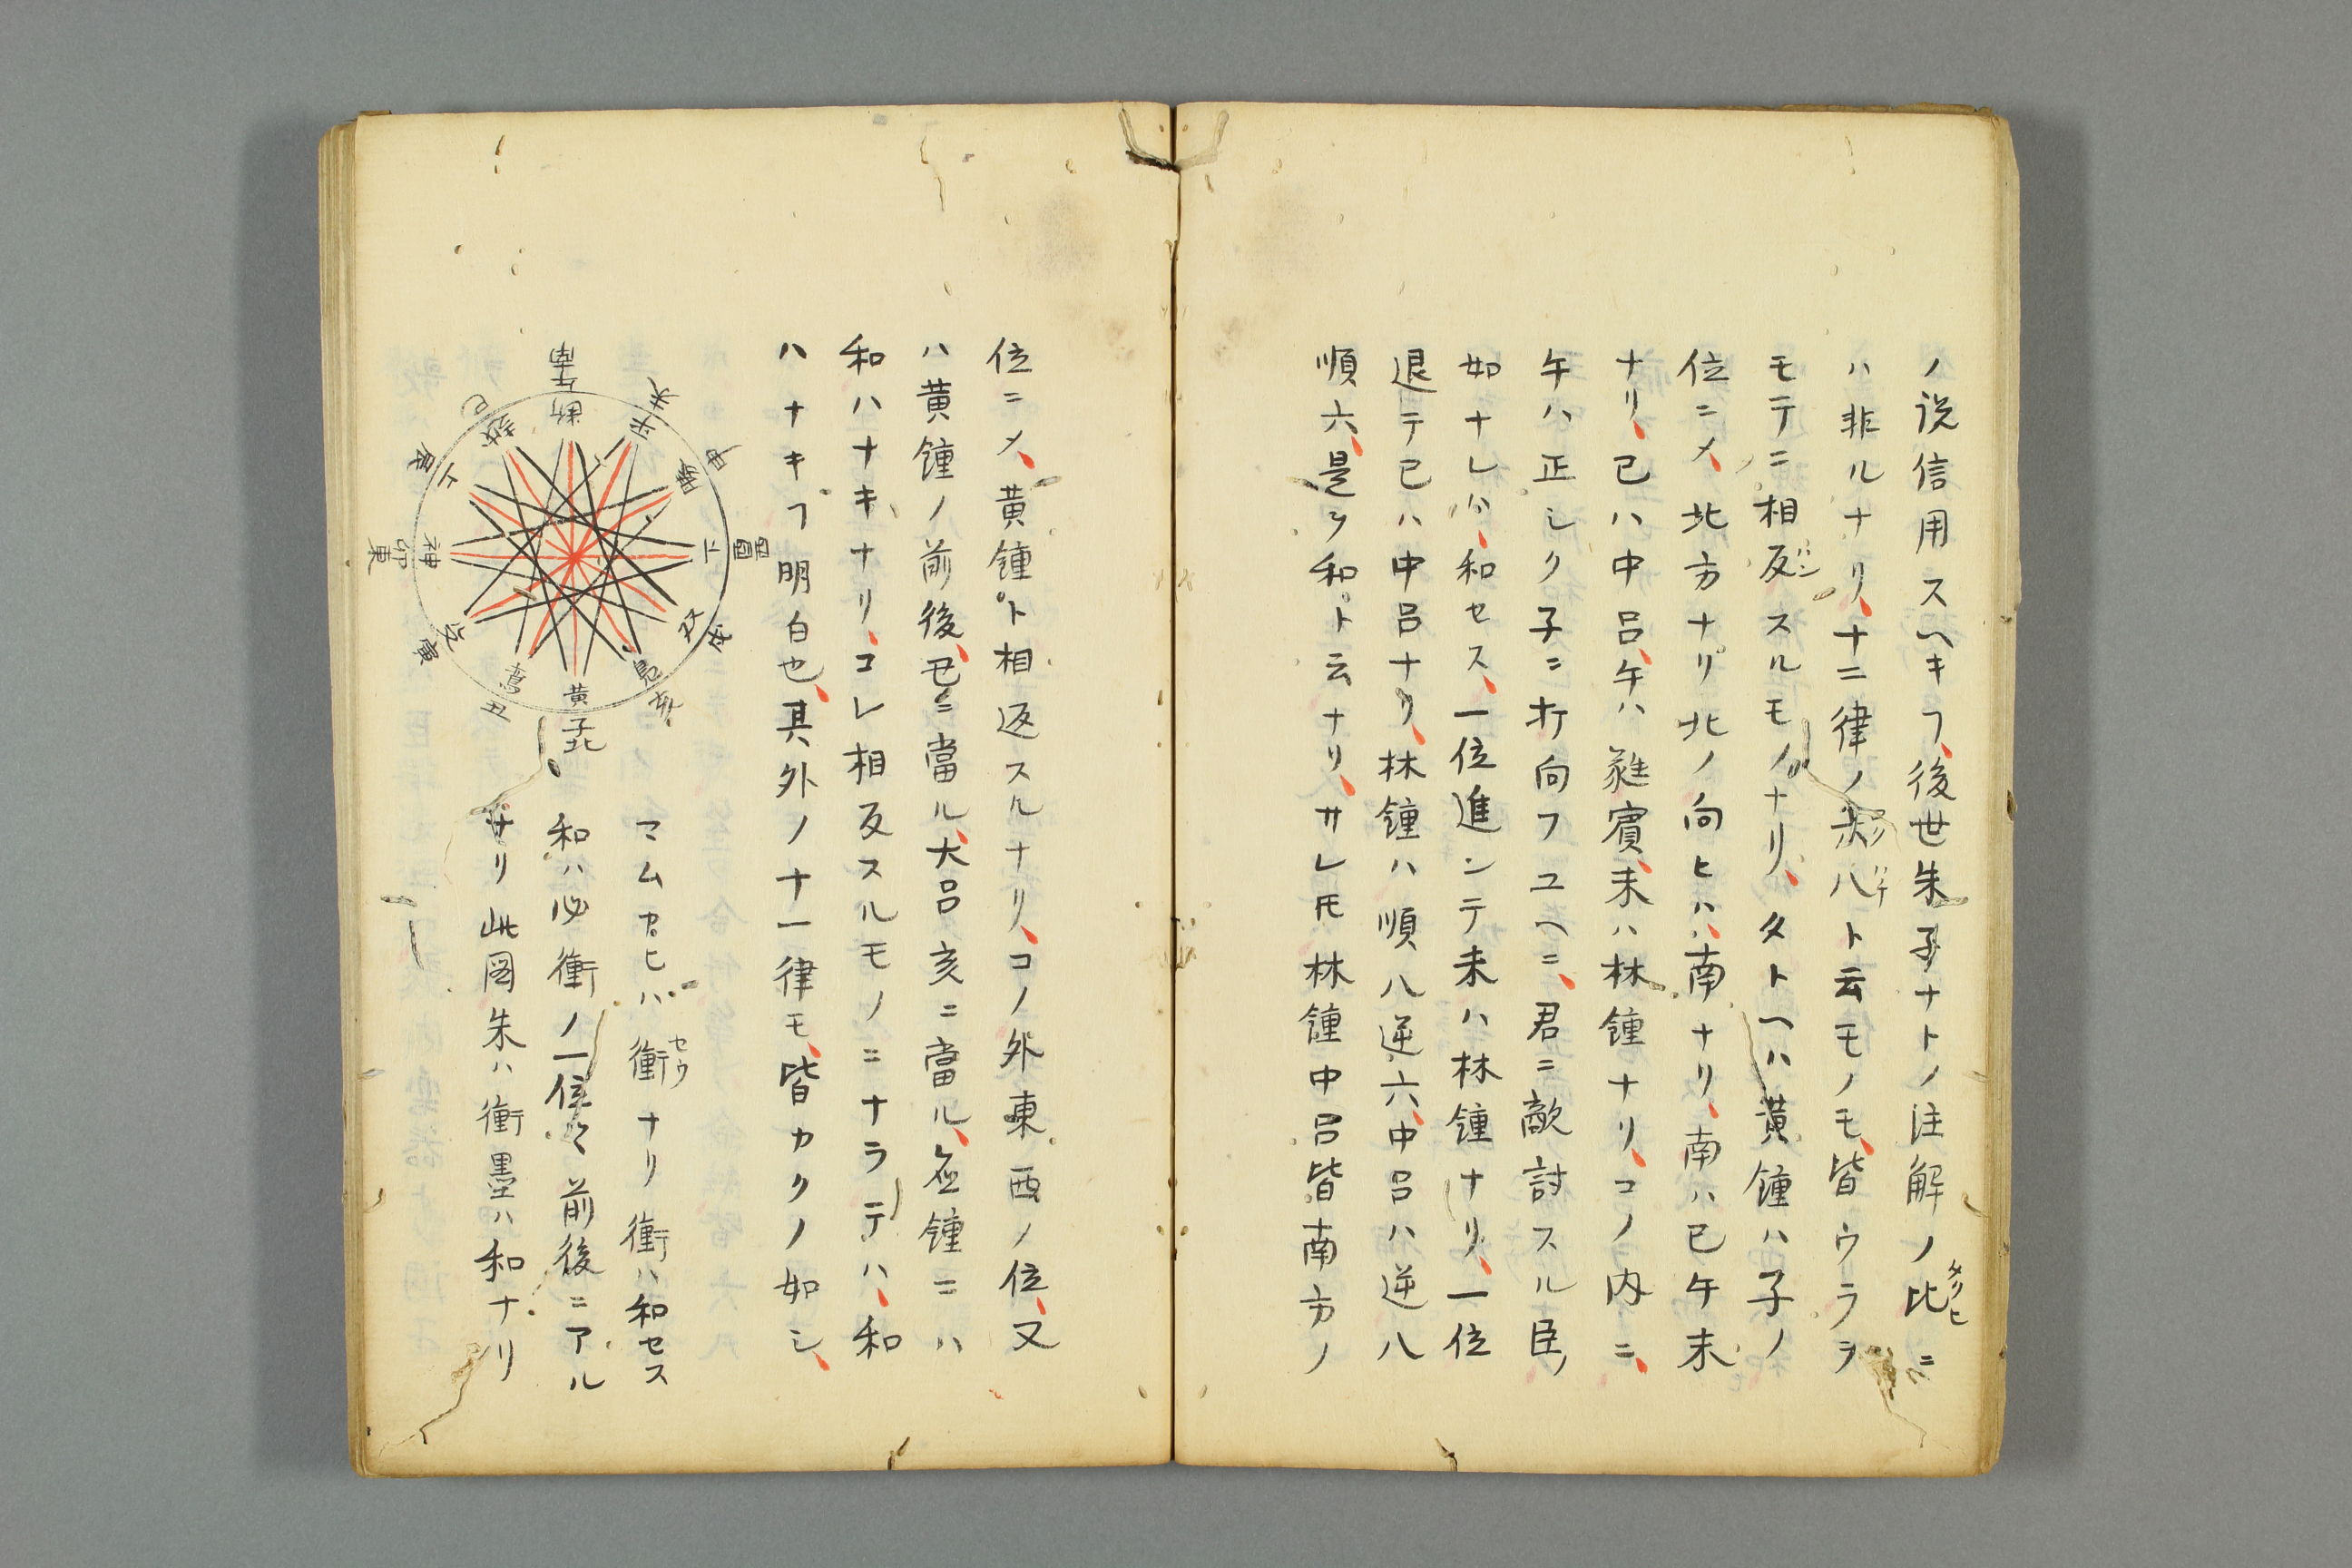 ノ説信用スヘキフ、後世朱子ナトノ注解ノ比タクヒニ
ハ非ルナリ、十二律ノ八ト云モノモ、皆ウラヲ
モテニ相反ハンスルモノナリ、タトヘハ黄鍾ハ子ノ
位ニメ、北方ナリ北ノ向ヒハ、南ナリ、南ハ巳午未
ナリ、巳ハ中呂、午ハ蕤賓、未ハ林鍾ナリ、コノ内ニ、
午ハ正シク子ニ打向フユヘニ、君ニ敵討スル臣ノ
如ナレハ、和セス、一位進ンテ未ハ林鍾ナリ、一位
退テ巳ハ中呂ナリ、林鍾ハ順八逆六、中呂ハ逆八
順六、是ヲ和ト云ナリ、サレ𪜈林鍾中呂皆南方ノ
位ニメ、黄鍾ト相返スルナリ、コノ外東西ノ位、又
ハ黄鍾ノ前後、丑ニ當ル、大呂亥ニ當ル、應鍾ニハ
和ハナキナリ、コレ相反スルモノニナラテハ、和
ハナキフ明白也、其外ノ十一律モ、皆カクノ如シ、
南
午
断
未
平
申
勝
酉
西
上
戌
亥
黄
子
北
丑
寅
神
卯
東
上
辰
巳
マムカヒハ衝セウナリ衝ハ和セス
和ハ必衝ノ一位々前後ニアル
ナリ此图朱ハ衝墨ハ和ナリ